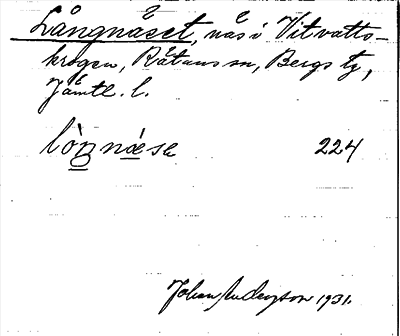 Långnäset, näs i Vitvatts-
krogen, Rätans sn, Bergs tg,
Jämtl. l.
lòŋnæse 224
Johan Anderzson 1931.